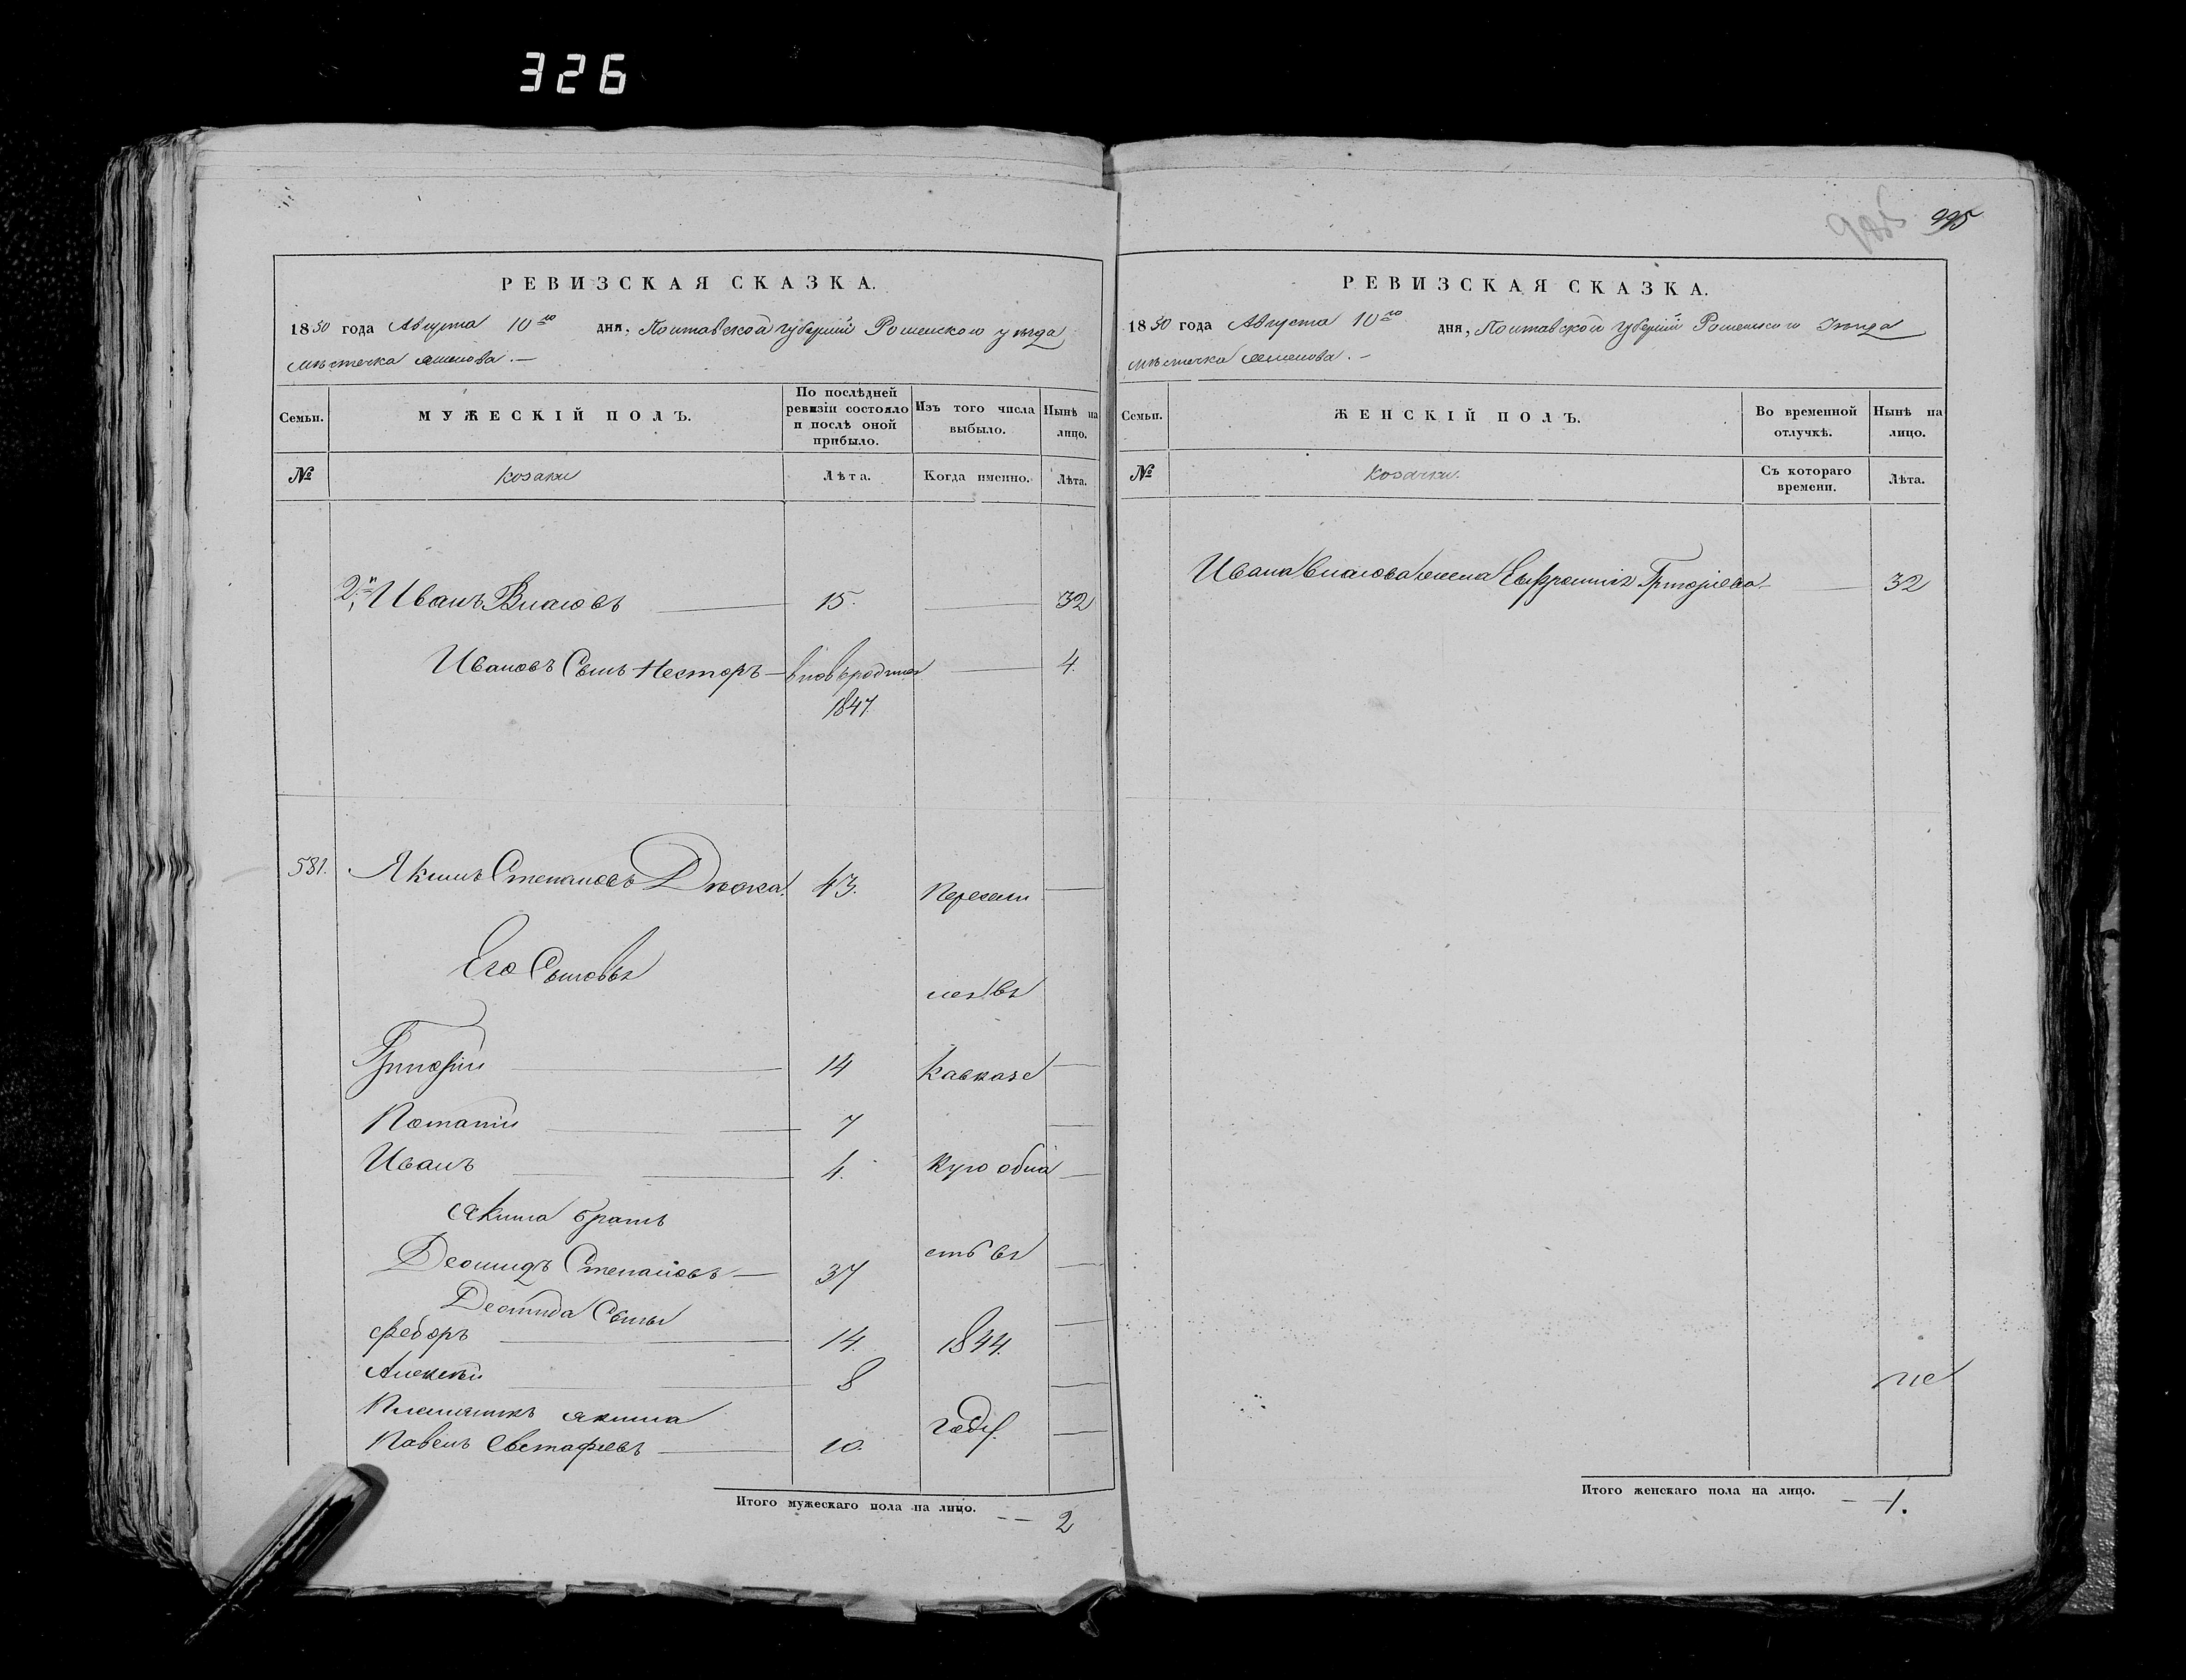 326
995
РЕВИЗСКАЯ СКАЗКА.
1850 года Августа 10го дня, Полтавской губернии Роменского уезда
местечка
Семьи.
МУЖЕСКІЙ ПОЛЪ.
По послѣдней ревизіи состояло и послѣ оной прибыло.
Изъ того числа выбыло.
Нынѣ на лицо.
№
козаки
Лѣта.
Когда именно.
Лѣта.
2й Иванъ Власовъ 15. 32
Ивановъ Сынъ Несторъ вновьродился 4.
1847
581. Якимъ Степановъ 43. Пересели
Его Сыновья
лся въ
Григорій 14 Кавказс
Потапій 7
Иванъ 4. кую обла
Якима братъ
Леонидъ Степановъ 37 сть въ
Леонида Сыны
Федоръ 14. 1844.
Алексей 8
Племянникъ Якима году.
Павелъ Евстафіевъ 10.
Итого мужескаго пола на лицо. 2
РЕВИЗСКАЯ СКАЗКА.
1850 года Августа 10го дня, Полтавской губернии Роменского уезда
местечка
Семьи.
ЖЕНСКІЙ ПОЛЪ.
Во временной отлучкѣ.
Нынѣ на лицо.
№
Козачки.
Съ котораго времени.
Лѣта.
Ивана Власова жена Григорiева 32
Итого женскаго пола на лицо. 1.